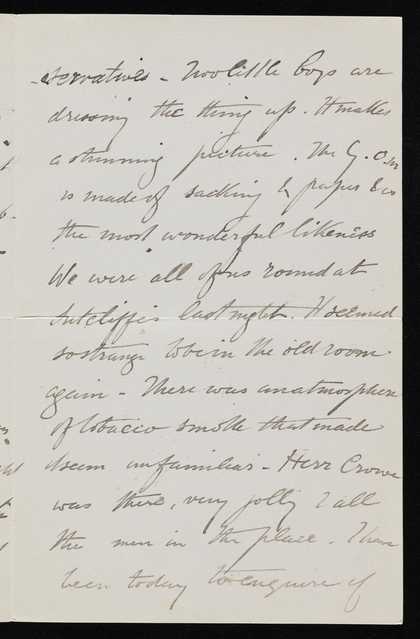 -servatives - Two little boys are
dressing the thing up. It makes
a stunning picture. The G.O.M
is made of sacking & paper & is
the most wonderful likeness
We were all of us round at
Sutcliffes last night. It seemed
so strange to be in the old room
again - There was an atmosphere
of tobacco smoke that made
it seem unfamiliar - Herr Crowe
was there, very jolly & all
the men in the place. I have
been today to enquire if